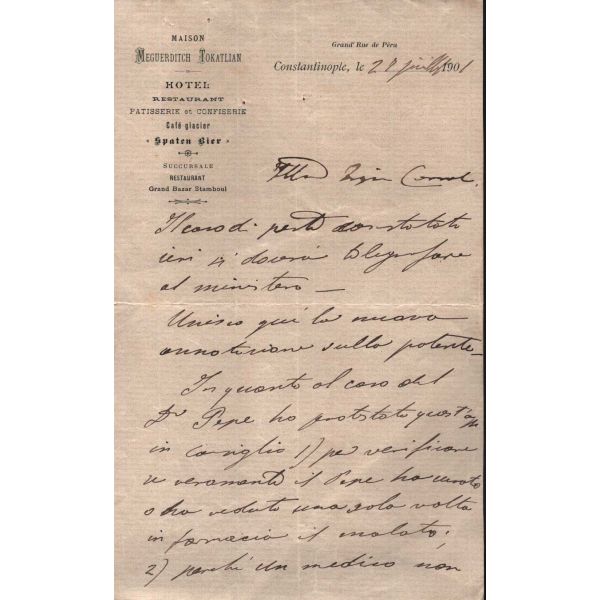 MAISON
MEGUERDITCH TOKATLIAN
HOTEL
RESTAURANT
PATISSERIE et CONFISERIE
Café glacier
Spaten Bier
SUCCURSALE
RESTAURANT
Grand Bazar Stamboul
Grand' Rue de Péra
Constantinople, le 27 juillet 1901
Ill Sign Consol.
Il caso di peste constatato
ieri si dovrà telegrafare
al ministero —
Unisco qui la nuova
annotazione sulla patente —
In quanto al caso del
Dr Pepe ho protestato quest'
in Consiglio 1) per verificare
se veramente il Pepe ha curato
o ha veduto una sola volta
in farmacia il malato;
2) perchè un medico non